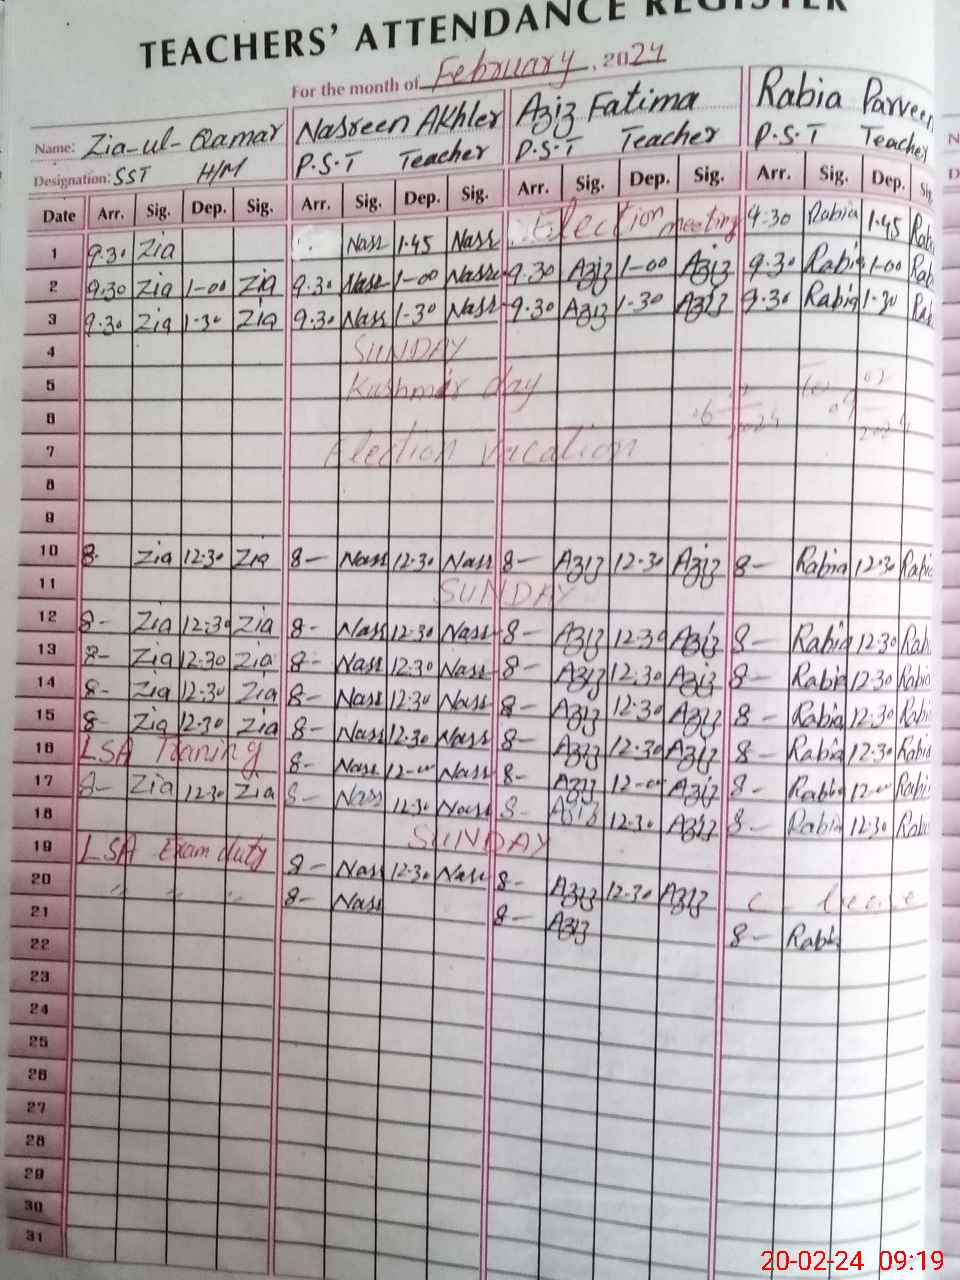 TEACHERS' ATTENDANCE REGISTER
For the month of February, 2024
Name: Zia-ul-Qamar Nasreen Akhter Aziz Fatima Rabia Parveen
Designation: SST H/M P.S.T Teacher P.S.T Teacher P.S.T Teacher
Date Arr. Sig. Dep. Sig. Arr. Sig. Dep. Sig. Arr. Sig. Dep. Sig. Arr. Sig. Dep. Sig
1 9.30 Zia Nass 1.45 Nass Election meeting 9.30 Rabia 1.45 Rabi
2 9.30 Zia 1-00 Zia 9.30 Nass 1-00 Nass 9.30 Aziz 1-00 Aziz 9.30 Rabia 1-00 Rab
3 9.30 Zia 1.30 Zia 9.30 Nass 1-30 Nass 9.30 Aziz 1-30 Aziz 9.30 Rabia 1.30 Rab
4 SUNDAY
5 Kashmir day
6
7 Election vacation
8
9
10 8- Zia 12.30 Zia 8- Nass 12.30 Nass 8- Aziz 12.30 Aziz 8- Rabia 12.30 Rabi
11 SUNDAY
12 8- Zia 12.30 Zia 8- Nass 12.30 Nass 8- Aziz 12.30 Aziz 8- Rabia 12.30 Rab
13 8- Zia 12.30 Zia 8- Nass 12.30 Nass 8- Aziz 12.30 Aziz 8- Rabia 12.30 Rabi
14 8- Zia 12.30 Zia 8- Nass 12.30 Nass 8- Aziz 12.30 Aziz 8- Rabia 12.30 Rabi
15 8- Zia 12.30 Zia 8- Nass 12.30 Nass 8- Aziz 12.30 Aziz 8- Rabia 12.30 Rabia
16 LSA Traning 8- Nass 12-00 Nass 8- Aziz 12-00 Aziz 8- Rabia 12-00 Rabi
17 8- Zia 12.30 Zia 8- Nass 12.30 Nass 8- Aziz 12.30 Aziz 8- Rabia 12.30 Rabi
18 SUNDAY
19 LSA Exam duty 8- Nass 12.30 Nass 8- Aziz 12.30 Aziz C- leave
20 " " " " 8- Nass 8- Aziz 8- Rabi
21
22
23
24
25
26
27
28
29
30
31
20-02-24 09:19